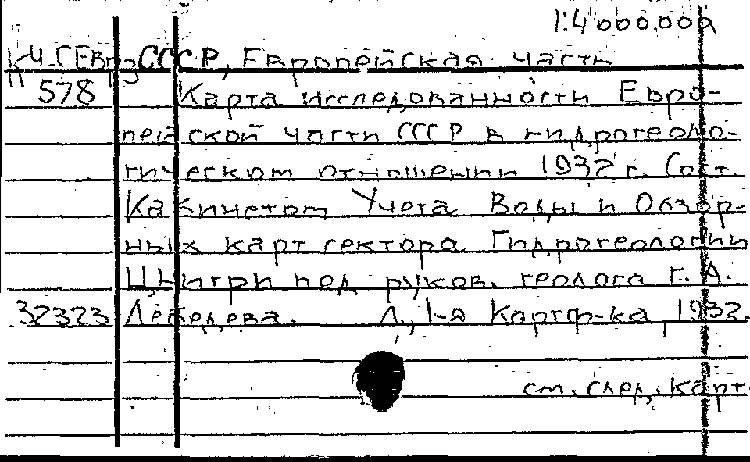 1:4 000.000
К Ч-ГЕвр СССР, Европейская часть
578 Карта исследованности Евро-
пейской части СССР в гидрогеоло-
гическом отношении 1932 г. Сост.
Кабинетом Учета Воды и Обзор-
ных карт сектора Гидрогеологии
ЦНИГРИ под руков. геолога Г. А.
32323 Лебедева. Л., 1-я Картф-ка, 1932.
см. след. карт